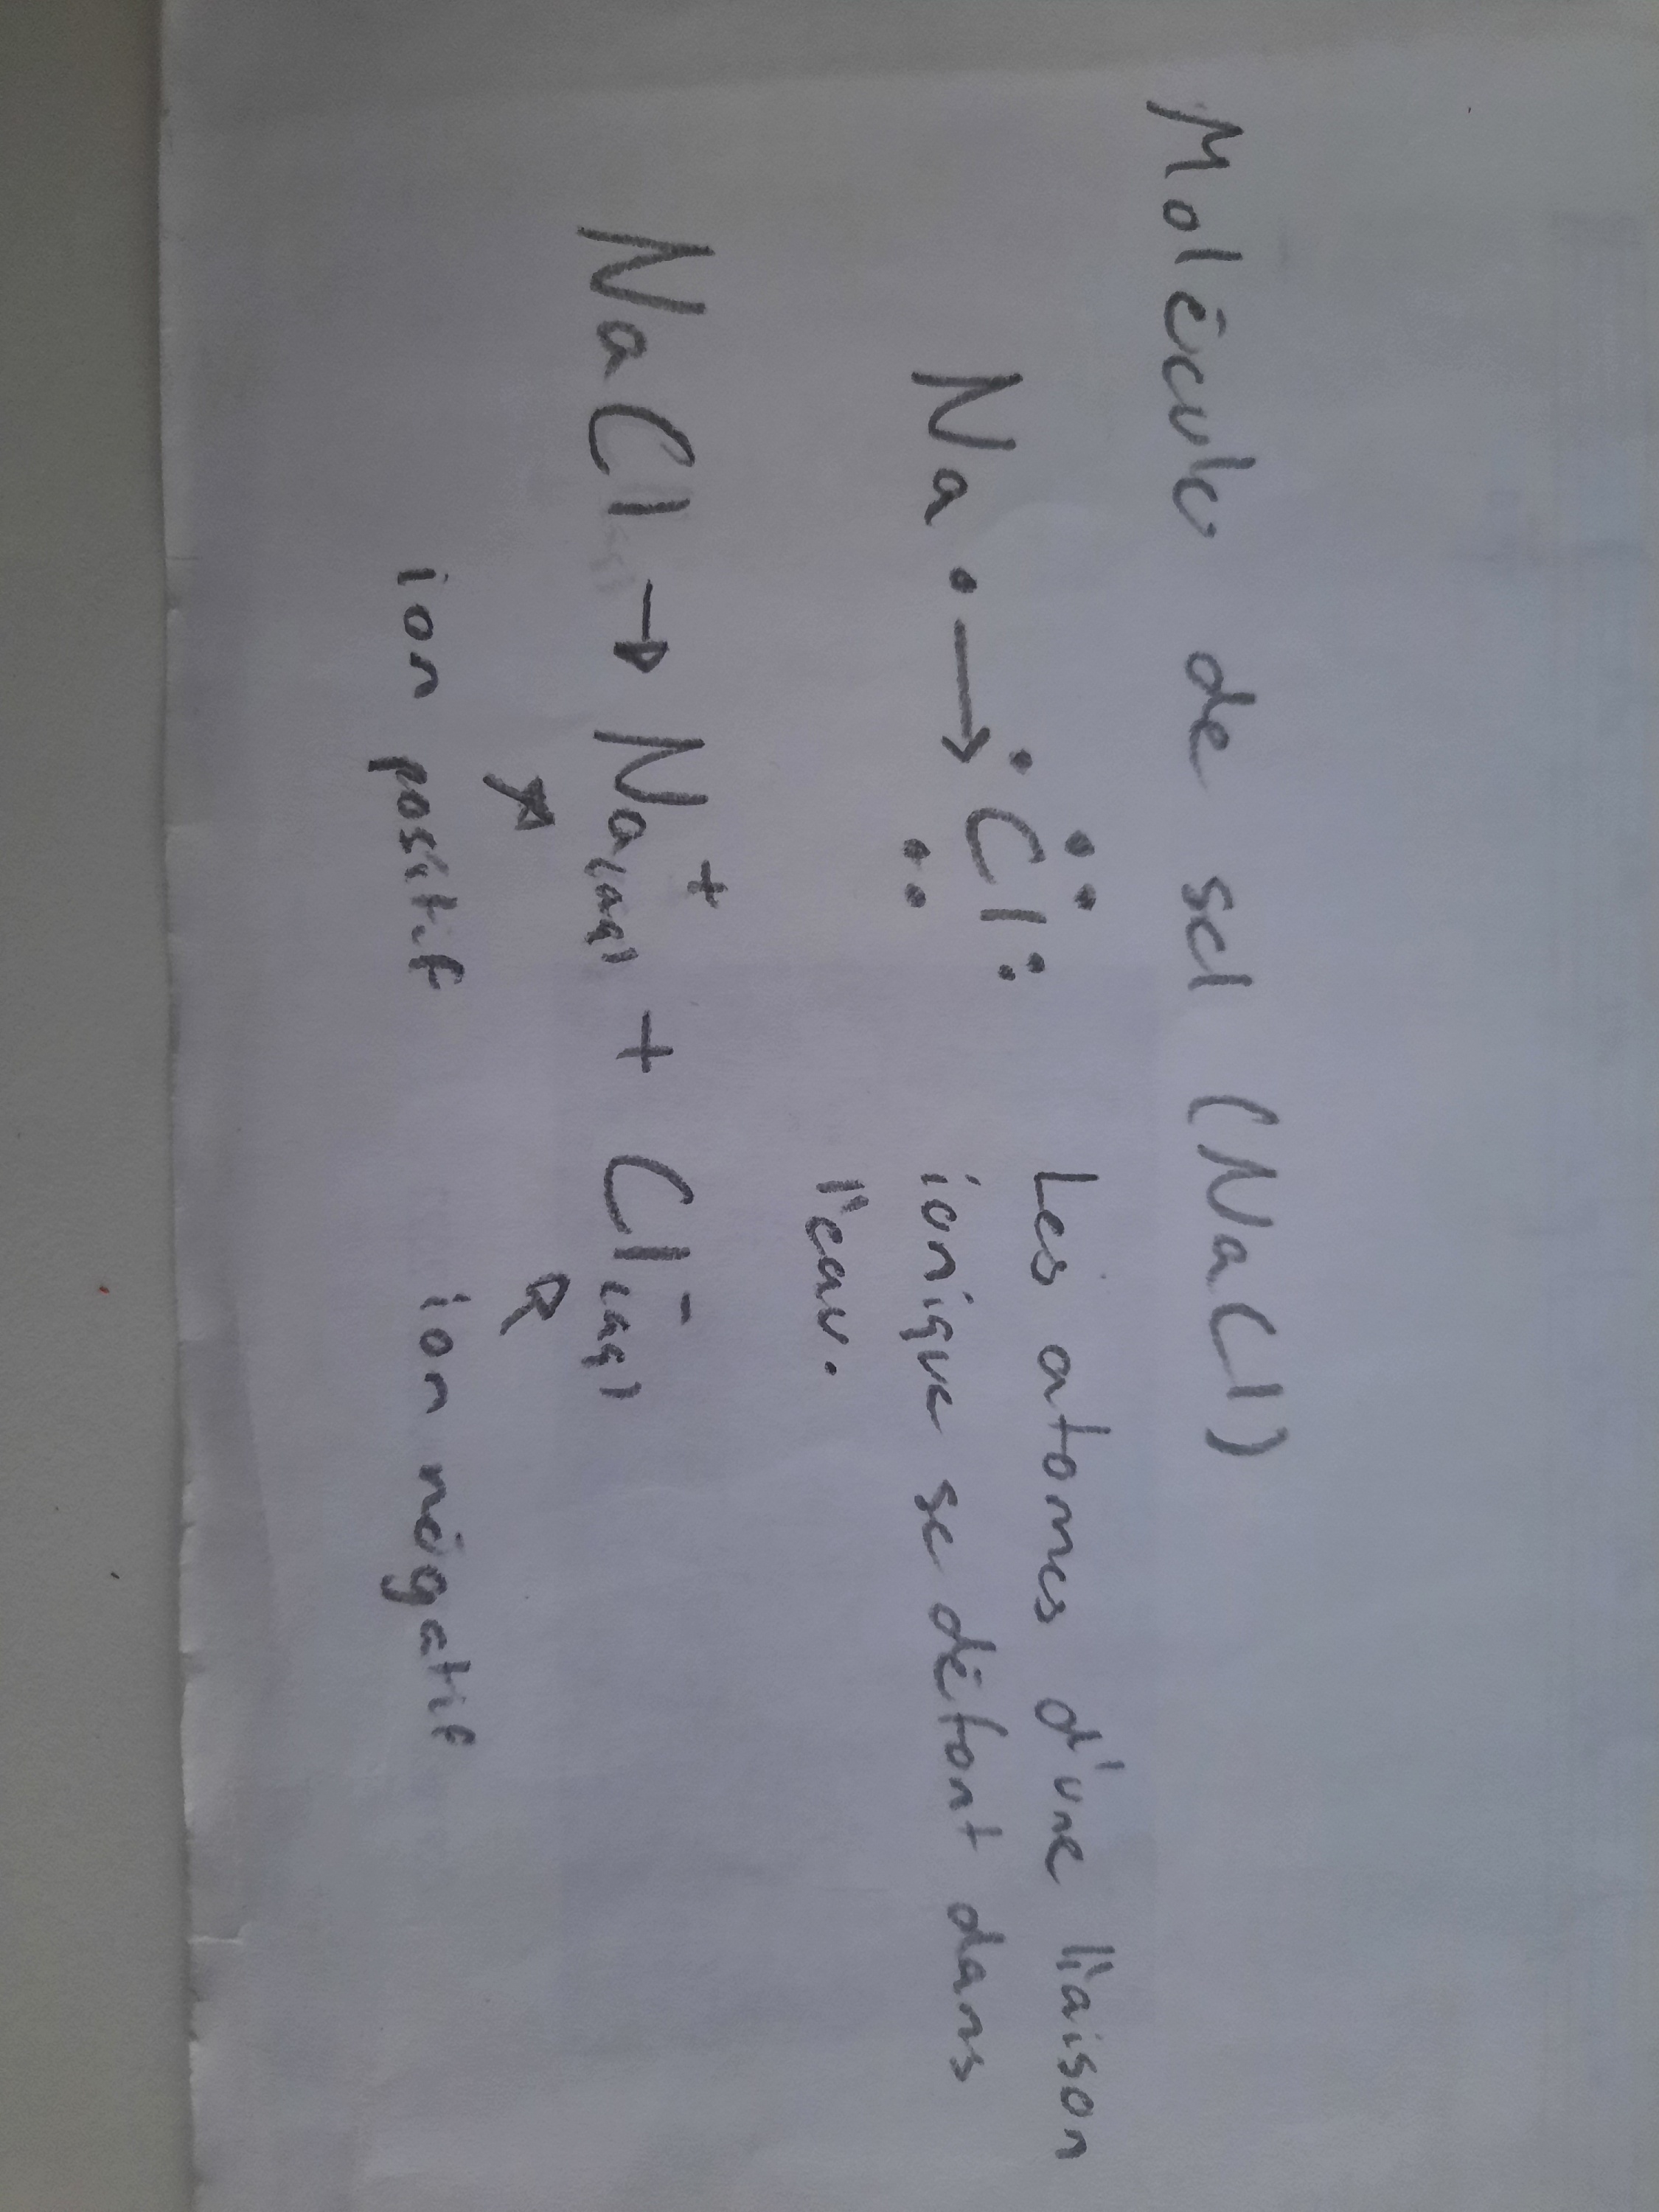 Molécule de sel (NaCl)
Na · → ·Cl: Les atomes d'une liaison
ionique se défont dans
l'eau.
NaCl → Na⁺(aq) + Cl⁻(aq)
ion positif ion négatif